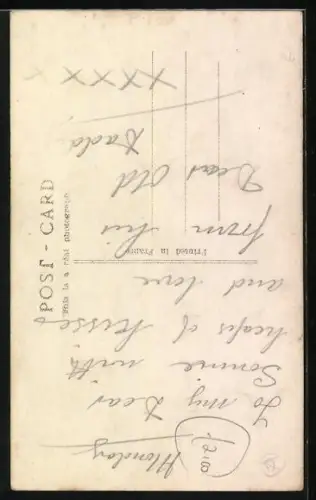 POST - CARD
This is a real photograph.
Printed in France
Monday
To my Dear
Sonnie with
heaps of kisses
and love
from his
Dear Old
Dada
XXXX